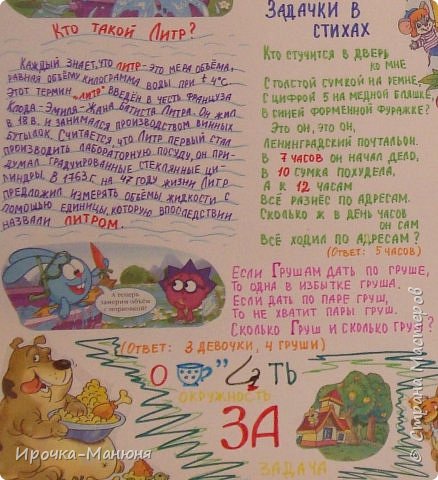 Кто такой Литр?
Каждый знает, что литр - это мера объёма,
равная объёму килограмма воды при t 4°С.
Этот термин "литр" введён в честь француза
Клода-Эмиля-Жана-Батиста Литра. Он жил
в 18 в. и занимался производством винных
бутылок. Считается, что Литр первый стал
производить лабораторную посуду, он при-
думал градуированные стеклянные ци-
линдры. В 1763 г. на 47 году жизни Литр
предложил измерять объёмы жидкости с
помощью единицы, которую впоследствии
назвали литром.
А теперь
замерим объём
с морковкой!
Задачки в
стихах
Кто стучится в дверь
ко мне
С толстой сумкой на ремне,
С цифрой 5 на медной бляшке,
В синей форменной фуражке?
Это он, это он,
Ленинградский почтальон.
В 7 часов он начал дело,
В 10 сумка похудела,
А к 12 часам
Всё разнёс по адресам.
Сколько ж в день часов
он сам
Всё ходил по адресам?
(Ответ: 5 часов)
Если Грушам дать по груше,
То одна в избытке груша.
Если дать по паре груш,
То не хватит пары груш.
Сколько Груш и сколько груш?
(Ответ: 3 девочки, 4 груши)
О " ТЬ
окружность
ЗА
задача
Ирочка-Манюня
© Страна Мастеров